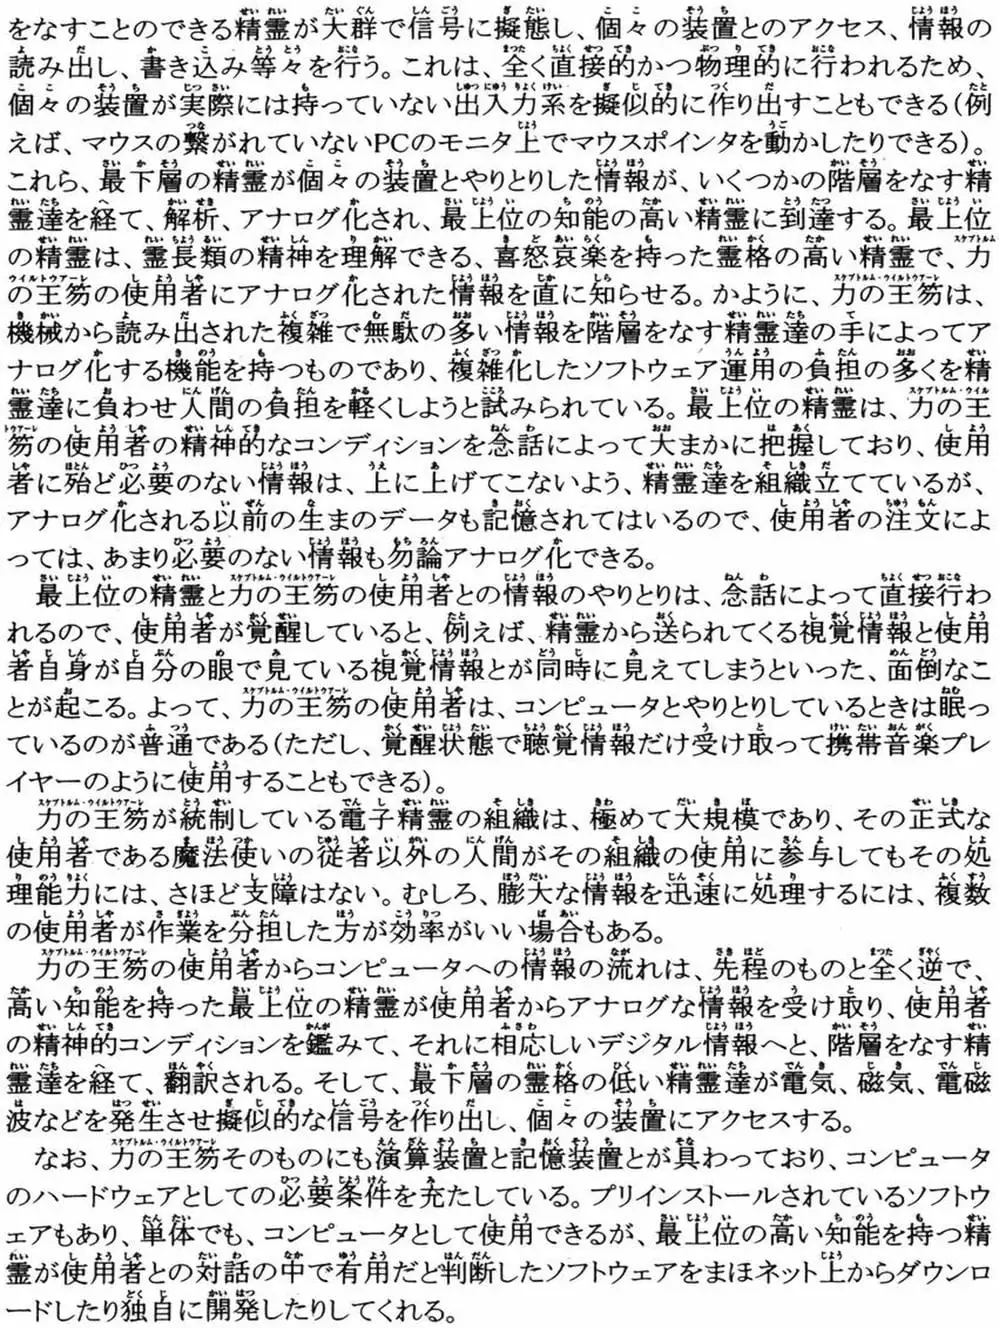 をなすことのできる精霊が大群で信号に擬態し、個々の装置とのアクセス、情報の
読み出し、書き込み等々を行う。これは、全く直接的かつ物理的に行われるため、
個々の装置が実際には持っていない出入力系を擬似的に作り出すこともできる(例
えば、マウスの繋がれていないPCのモニタ上でマウスポインタを動かしたりできる)。
これら、最下層の精霊が個々の装置とやりとりした情報が、いくつかの階層をなす精
霊達を経て、解析、アナログ化され、最上位の知能の高い精霊に到達する。最上位
の精霊は、霊長類の精神を理解できる、喜怒哀楽を持った霊格の高い精霊で、力
の王笏の使用者にアナログ化された情報を直に知らせる。かように、力の王笏は、
機械から読み出された複雑で無駄の多い情報を階層をなす精霊達の手によってア
ナログ化する機能を持つものであり、複雑化したソフトウェア運用の負担の多くを精
霊達に負わせ人間の負担を軽くしようと試みられている。最上位の精霊は、力の王
笏の使用者の精神的なコンディションを念話によって大まかに把握しており、使用
者に殆ど必要のない情報は、上に上げてこないよう、精霊達を組織立てているが、
アナログ化される以前の生まのデータも記憶されてはいるので、使用者の注文によ
っては、あまり必要のない情報も勿論アナログ化できる。
最上位の精霊と力の王笏の使用者との情報のやりとりは、念話によって直接行わ
れるので、使用者が覚醒していると、例えば、精霊から送られてくる視覚情報と使用
者自身が自分の眼で見ている視覚情報とが同時に見えてしまうといった、面倒なこ
とが起こる。よって、力の王笏の使用者は、コンピュータとやりとりしているときは眠っ
ているのが普通である(ただし、覚醒状態で聴覚情報だけ受け取って携帯音楽プレ
イヤーのように使用することもできる)。
力の王笏が統制している電子精霊の組織は、極めて大規模であり、その正式な
使用者である魔法使いの従者以外の人間がその組織の使用に参与してもその処
理能力には、さほど支障はない。むしろ、膨大な情報を迅速に処理するには、複数
の使用者が作業を分担した方が効率がいい場合もある。
力の王笏の使用者からコンピュータへの情報の流れは、先程のものと全く逆で、
高い知能を持った最上位の精霊が使用者からアナログな情報を受け取り、使用者
の精神的コンディションを鑑みて、それに相応しいデジタル情報へと、階層をなす精
霊達を経て、翻訳される。そして、最下層の霊格の低い精霊達が電気、磁気、電磁
波などを発生させ擬似的な信号を作り出し、個々の装置にアクセスする。
なお、力の王笏そのものにも演算装置と記憶装置とが具わっており、コンピュータ
のハードウェアとしての必要条件を充たしている。プリインストールされているソフトウ
ェアもあり、単体でも、コンピュータとして使用できるが、最上位の高い知能を持つ精
霊が使用者との対話の中で有用だと判断したソフトウェアをまほネット上からダウンロ
ードしたり独自に開発したりしてくれる。